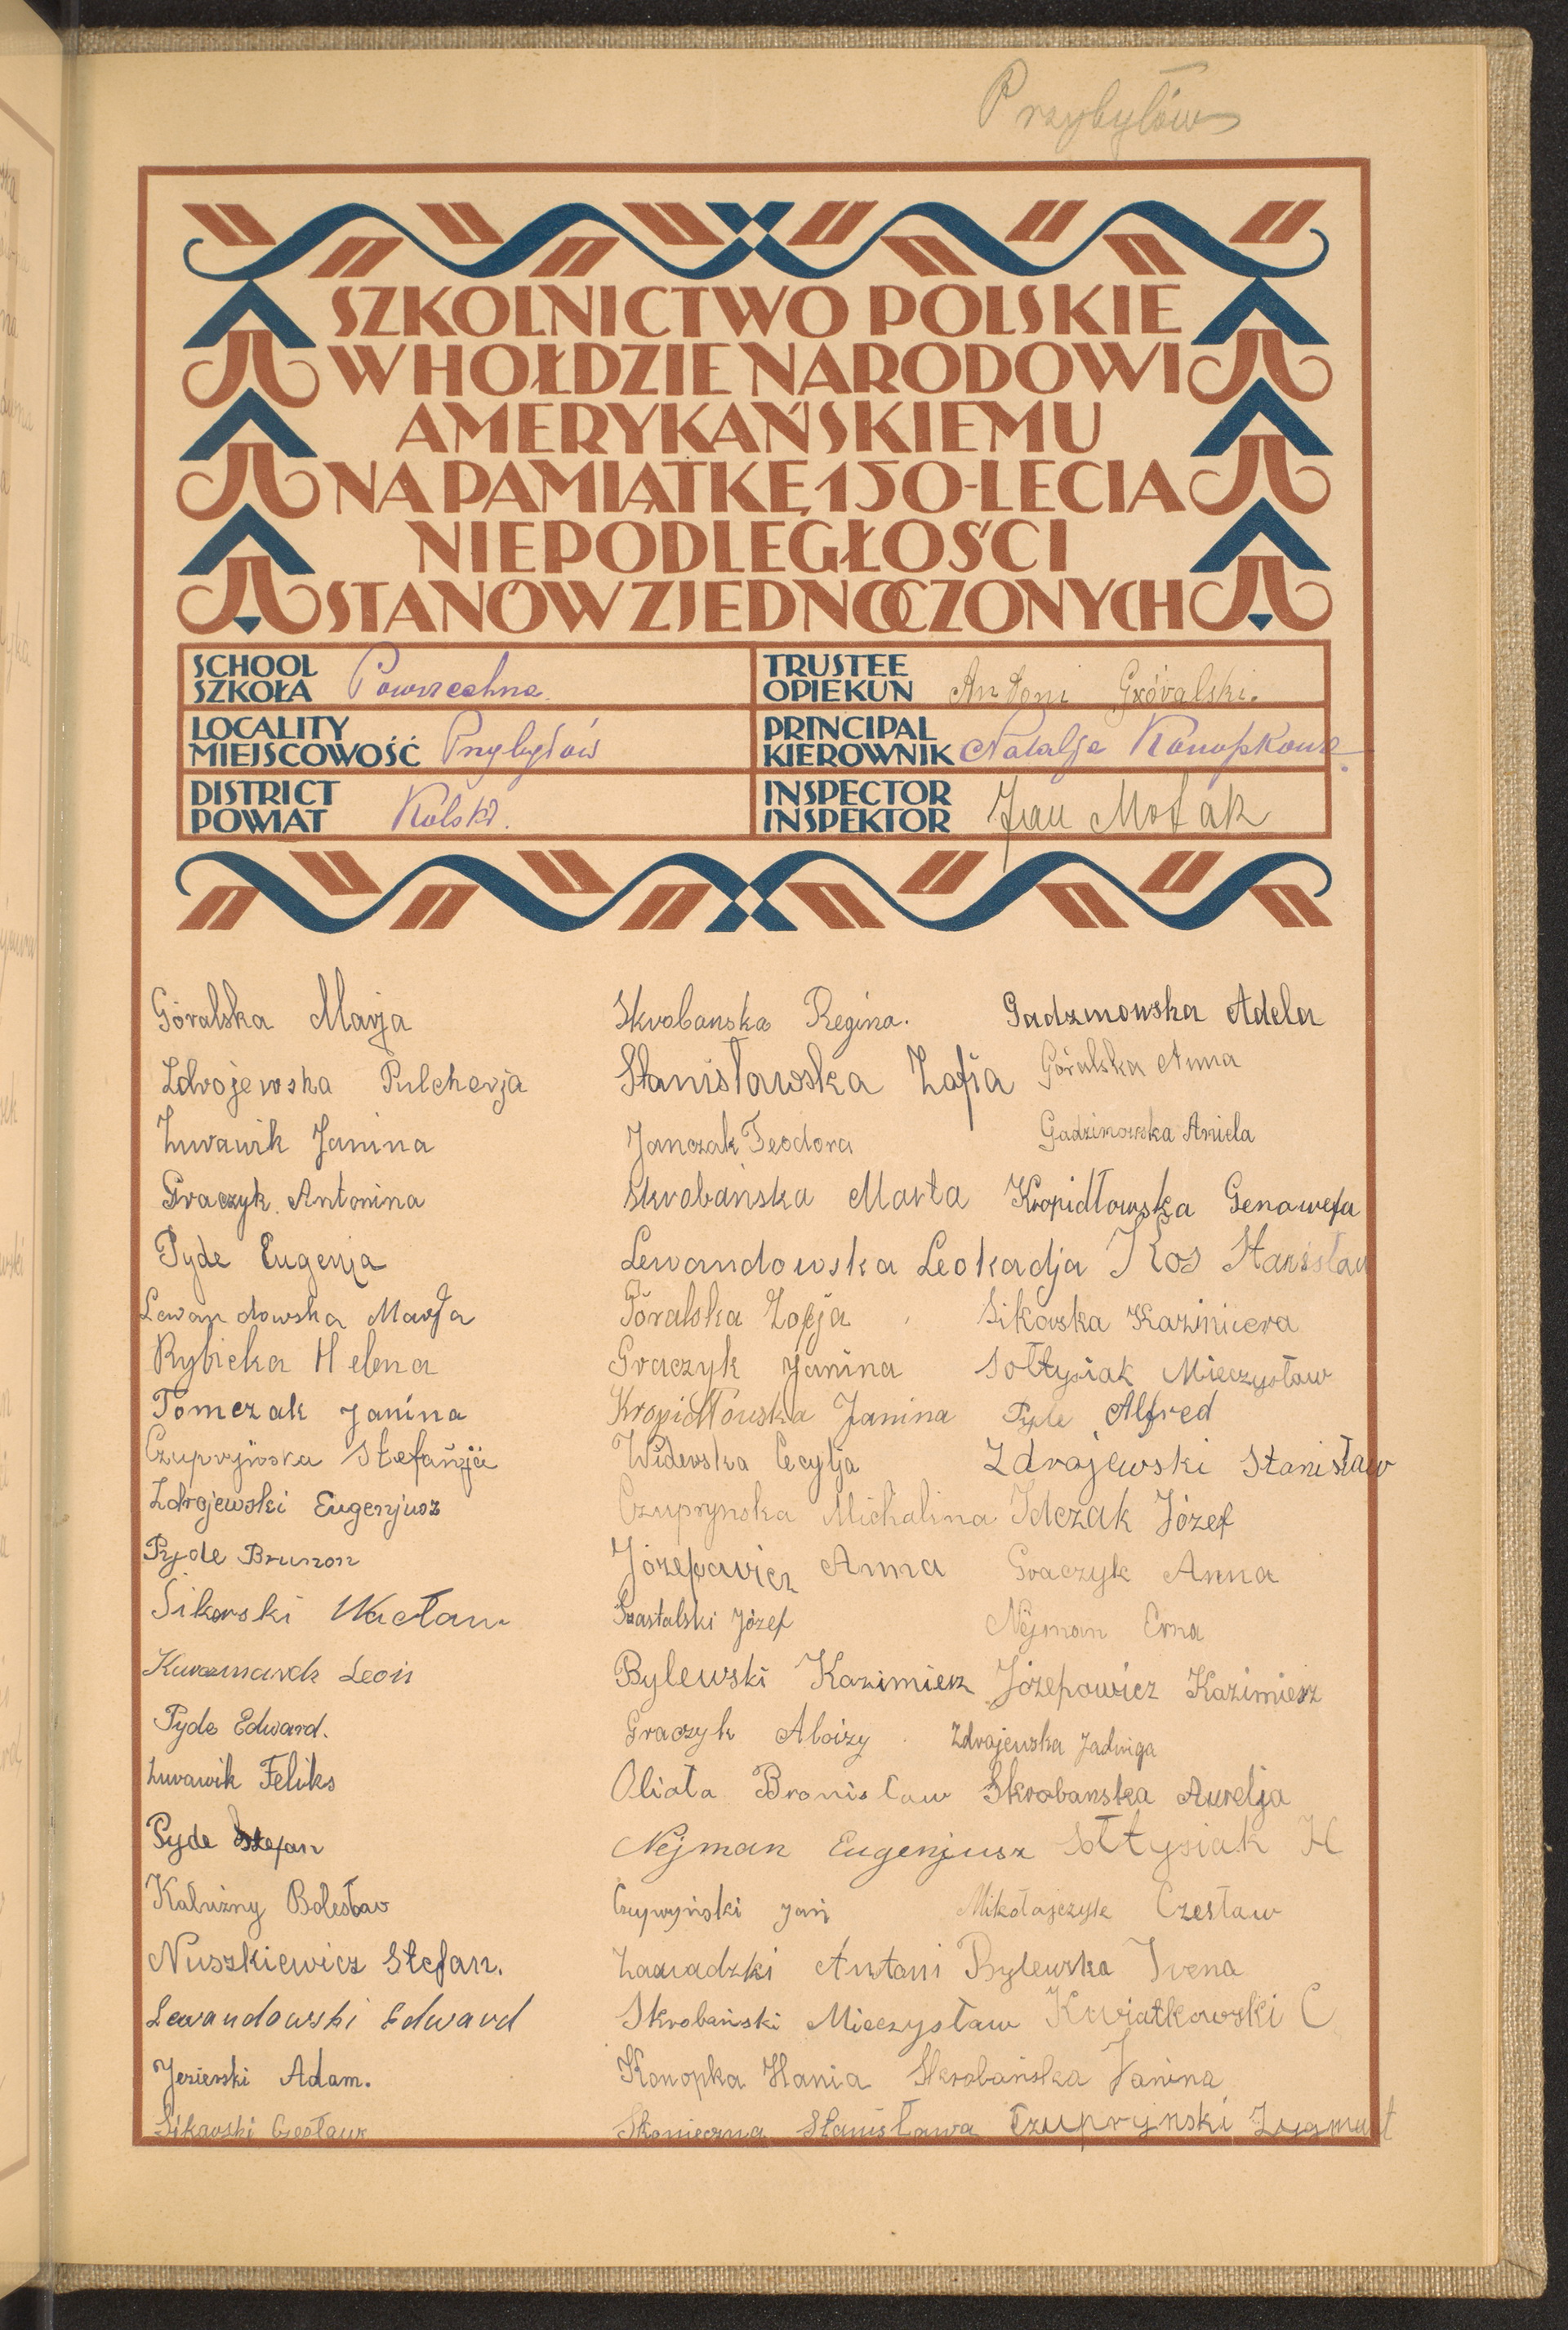 Przybyłów
SZKOLNICTWO POLSKIE
W HOŁDZIE NARODOWI
AMERYKAŃSKIEMU
NA PAMIĄTKĘ 150-LECIA
NIEPODLEGŁOŚCI
STANÓW ZJEDNOCZONYCH
SCHOOL
SZKOŁA Powszechna
TRUSTEE
OPIEKUN Antoni
LOCALITY
MIEJSCOWOŚĆ Przybyłów
PRINCIPAL
KIEROWNIK Natalja Konopkowa
DISTRICT
POWIAT Kolski.
INSPECTOR
INSPEKTOR Jan
Góralska Marja
Zdrojewska Pulcherja
Żurawik Janina
Graczyk Antonina
Pyde Eugenja
Lewandowska Marja
Rybicka Helena
Tomczak Janina
Stefanja
Zdrojewski Eugenjusz
Pyde Brunon
Sikorski Wacław
Leon
Pyde Edward.
Żurawik Feliks
Pyde Stefan
Kałużny Bolesław
Nuszkiewicz Stefan.
Lewandowski Edward
Jezierski Adam.
Sikorski Czesław
Skrobanska Regina.
Stanisławska Zofia
Janczak Teodora
Skrobańska Marta
Lewandowska Leokadja
Góralska Zofja
Graczyk Janina
Kropidłowska Janina
Widerska Cecylja
Czuprynska Michalina
Józefowicz Anna
Szastalski Józef
Bylewski Kazimierz
Graczyk Aloizy
Oliota Bronisław
Nejman Eugenjusz
Jan
Zawadzki Antoni
Skrobański Mieczysław
Konopka Hania
Skonieczna Stanisława
Gadzinowska Adela
Góralska Anna
Gadzinowska Aniela
Kropidłowska Genowefa
Kos Stanisław
Sikorska Kazimiera
Sołtysiak Mieczysław
Pyde Alfred
Zdrajewski Stanisław
Idczak Józef
Graczyk Anna
Nejman Erna
Józefowicz Kazimierz
Zdrajewska Jadwiga
Skrobanska Aurelja
Sołtysiak H
Mikołajczyk Czesław
Bylewska Irena
Kwiatkowski C
Skrobańska Janina
Czuprynski Zygmunt